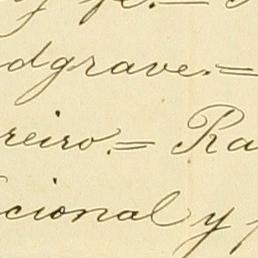 y fe.=
dgrave.=
reiro.= Ra
cional y f